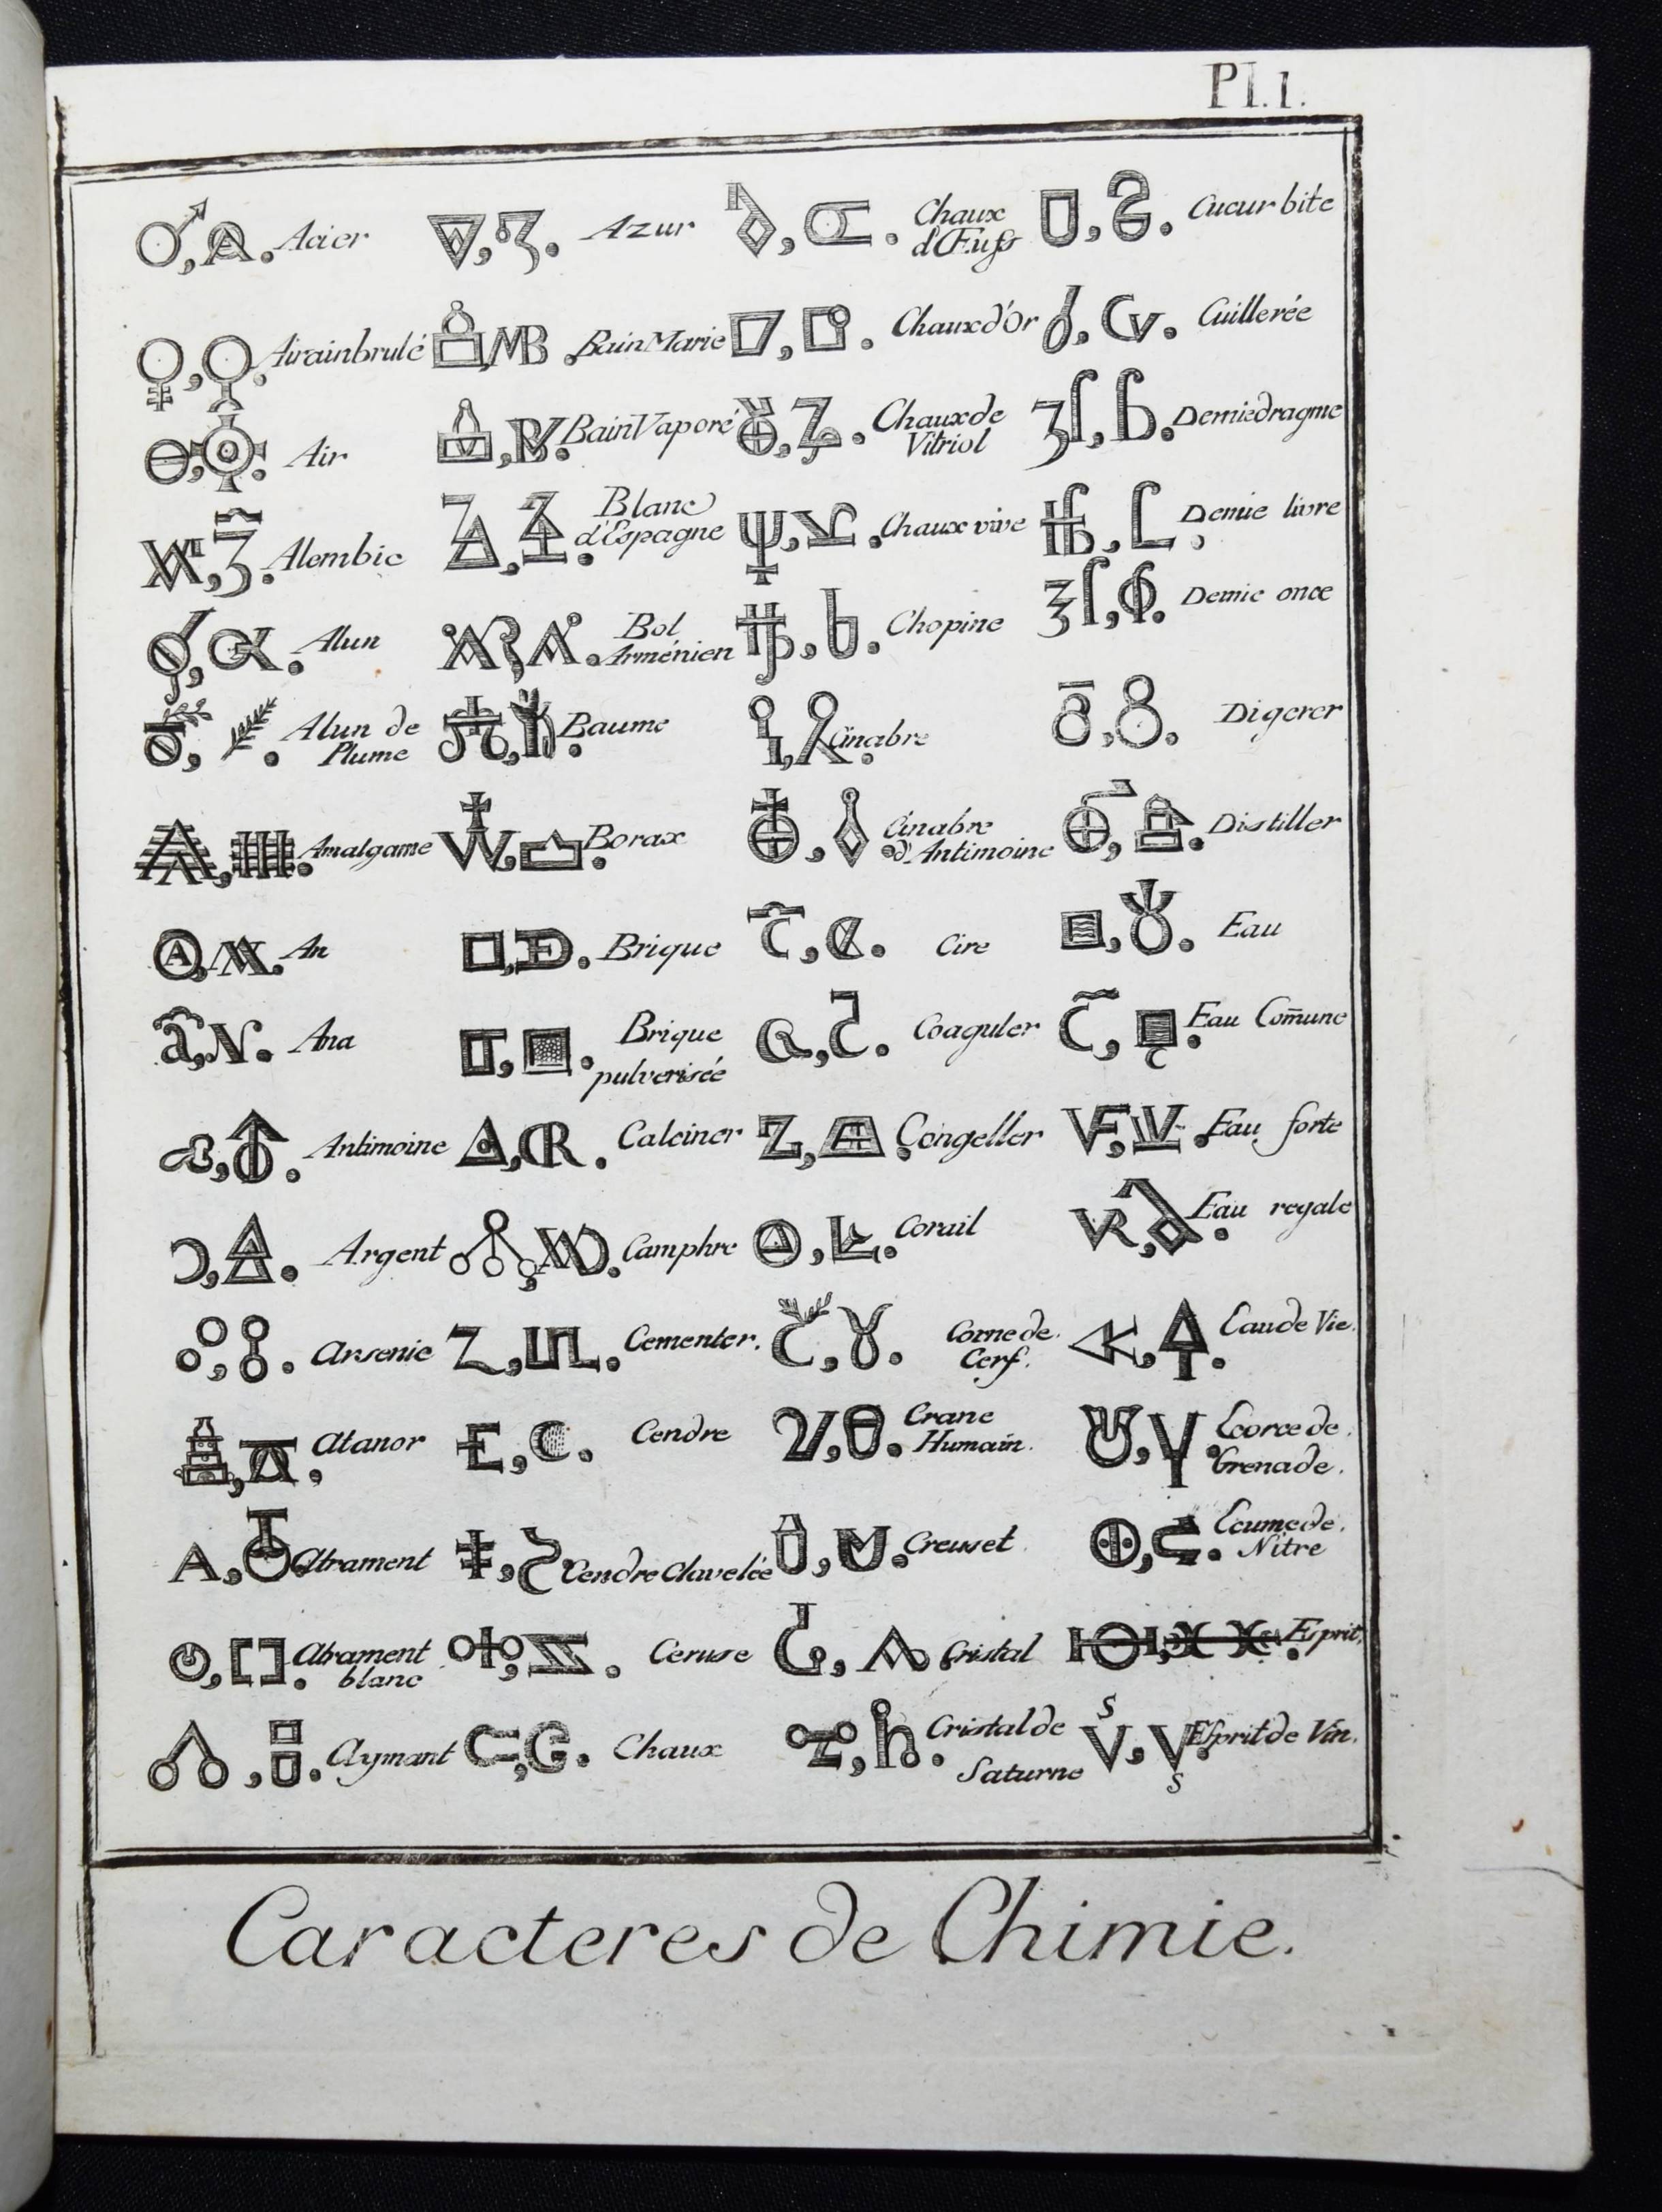 Pl. 1.
Acier
Airain brulé
Air
Alembic
Alun
Alun de
Plume
Amalgame
An
Ana
Antimoine
Argent
Arsenic
Atanor
Atrament
Atrament
blanc
Aymant
Azur
MB Bain Marie
Bain Vaporé
Blanc
d'Espagne
Bol
Arménien
Baume
Borax
Brique
Brique
pulverisée
Calciner
Camphre
Cementer.
Cendre
Cendre Clavelée
Ceruse
Chaux
Chaux
d'Œufs
Chaux d'Or
Chaux de
Vitriol
Chaux vive
Chopine
Cinabre
Cinabre
d'Antimoine
Cire
Coaguler
Congeller
Corail
Corne de.
Cerf.
Crane
Humain.
Creuset.
Cristal
Cristal de
Saturne
Cucurbite
Cuillerée
Demie dragme
Demie livre
Demie once
Digerer
Distiller
Eau
Eau Com̄une
Eau forte
Eau regale
Eau de Vie.
Ecorce de.
Grenade.
Ecume de.
Nitre
Esprit.
Esprit de Vin.
Caracteres de Chimie.